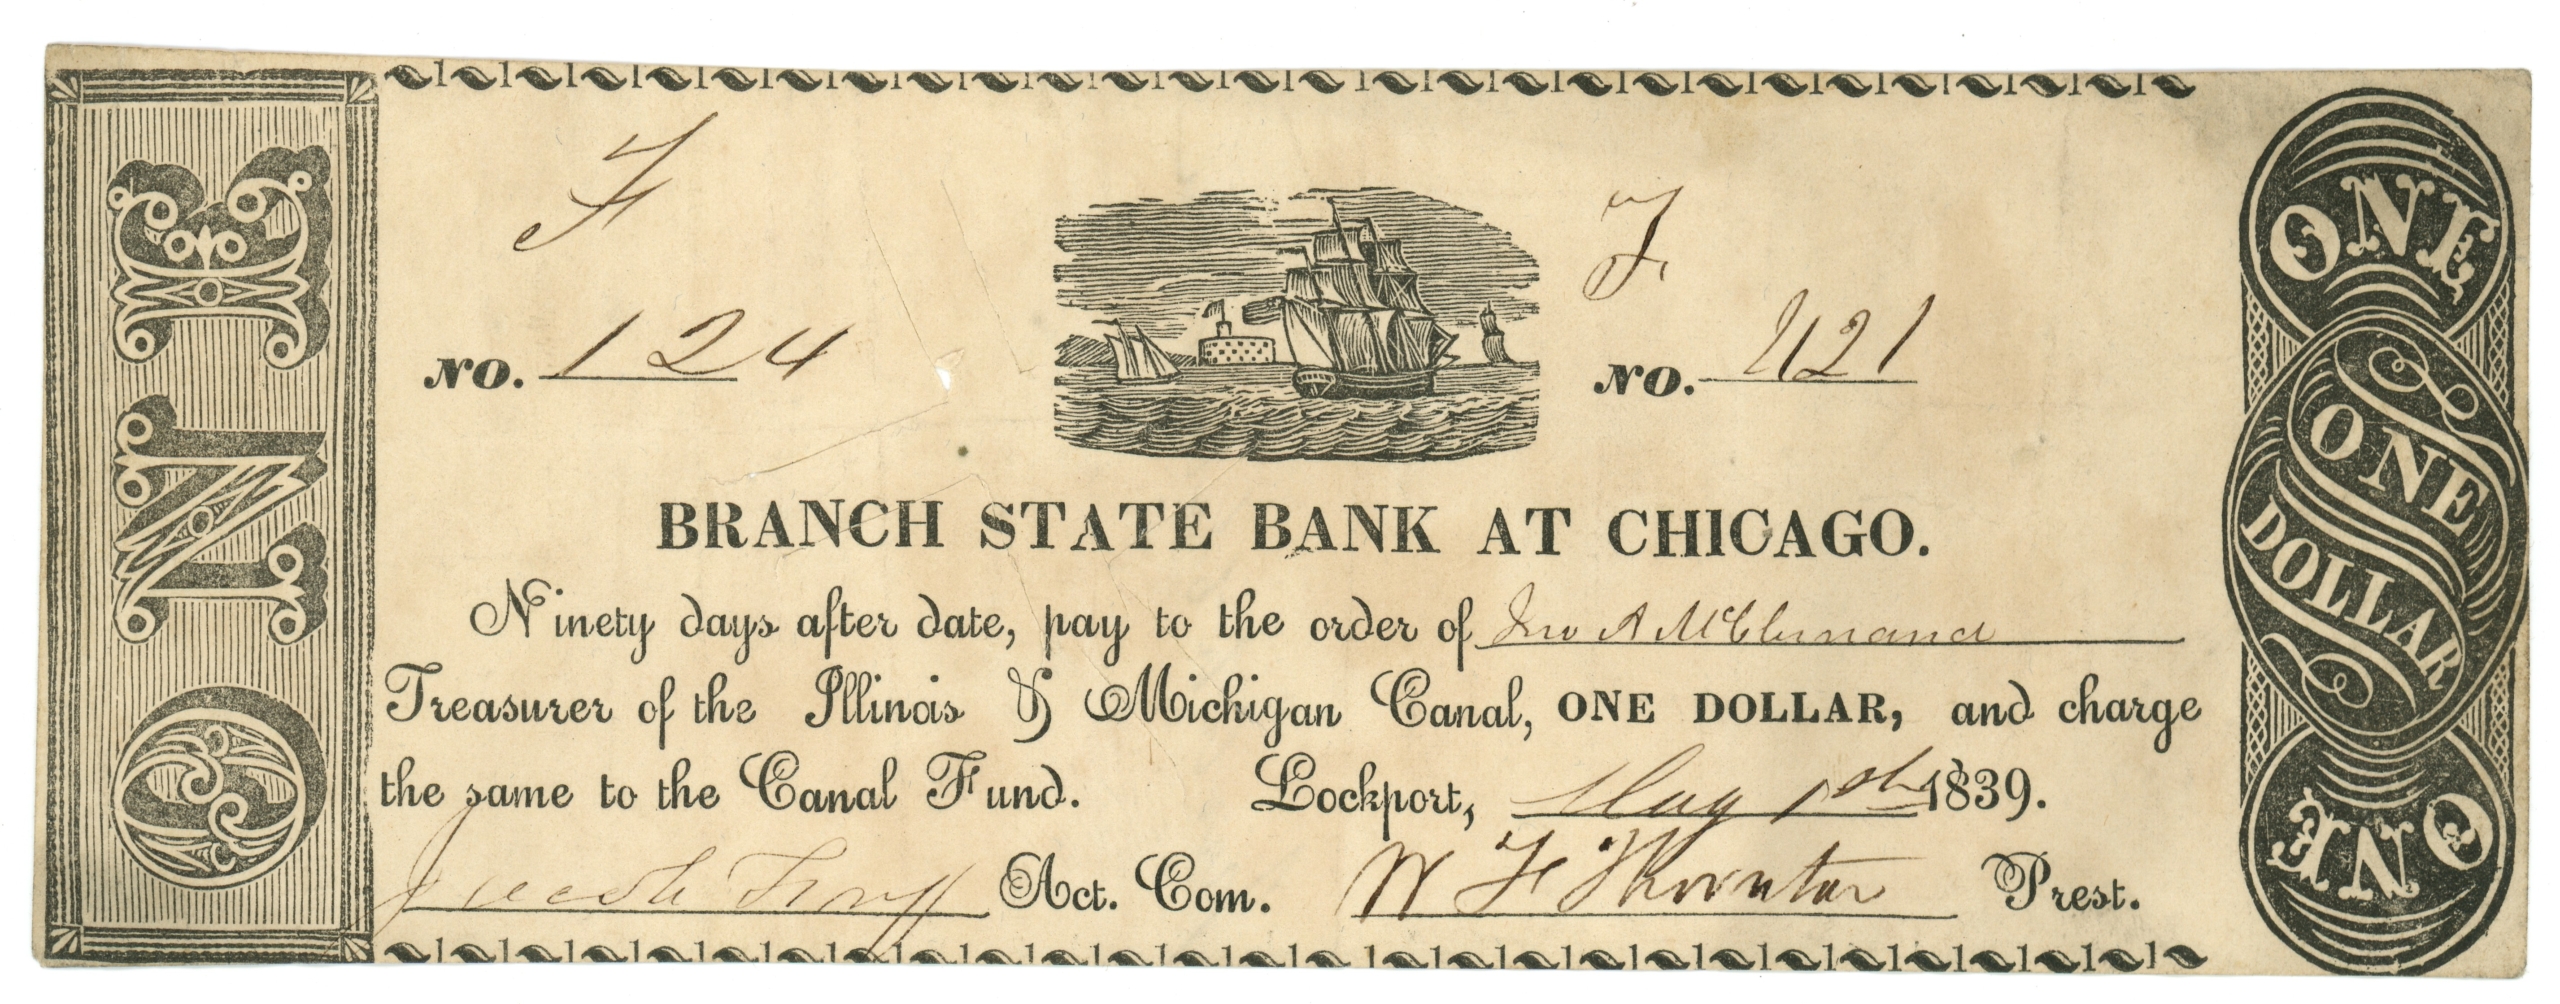 ONE
F
F
NO. 124
NO. 421
BRANCH STATE BANK AT CHICAGO.
Ninety days after date, pay to the order of Jno A McClernand
Treasurer of the Illinois & Michigan Canal, ONE DOLLAR, and charge
the same to the Canal Fund. Lockport, May 1st 1839.
Jacob Fry Act. Com. W F Thornton Prest.
ONE
ONE
DOLLAR
ONE